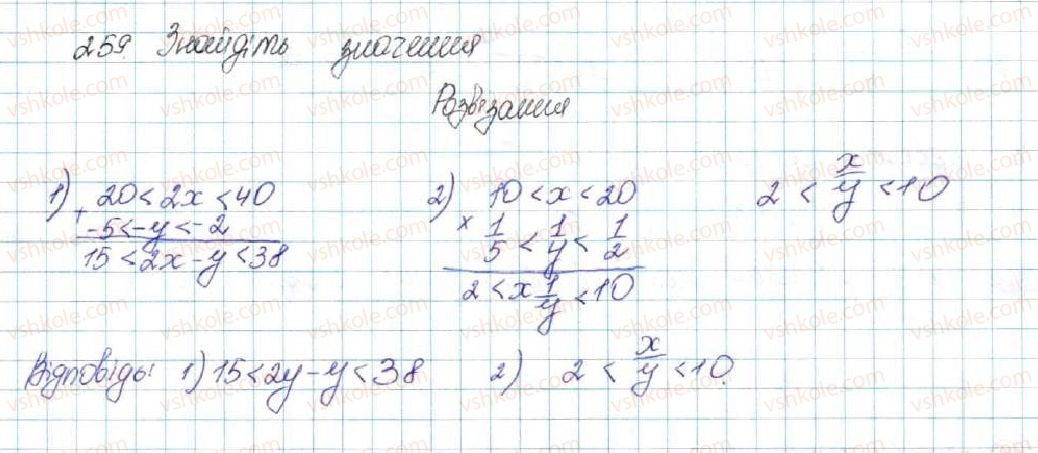 259. Знайдіть значення
Розв'язання
1) 20 < 2x < 40
+ -5 < -y < -2
15 < 2x - y < 38
2) 10 < x < 20
× 1/5 < 1/y < 1/2
2 < x 1/y < 10
2 < x/y < 10
Відповідь: 1) 15 < 2y - y < 38 2) 2 < x/y < 10.